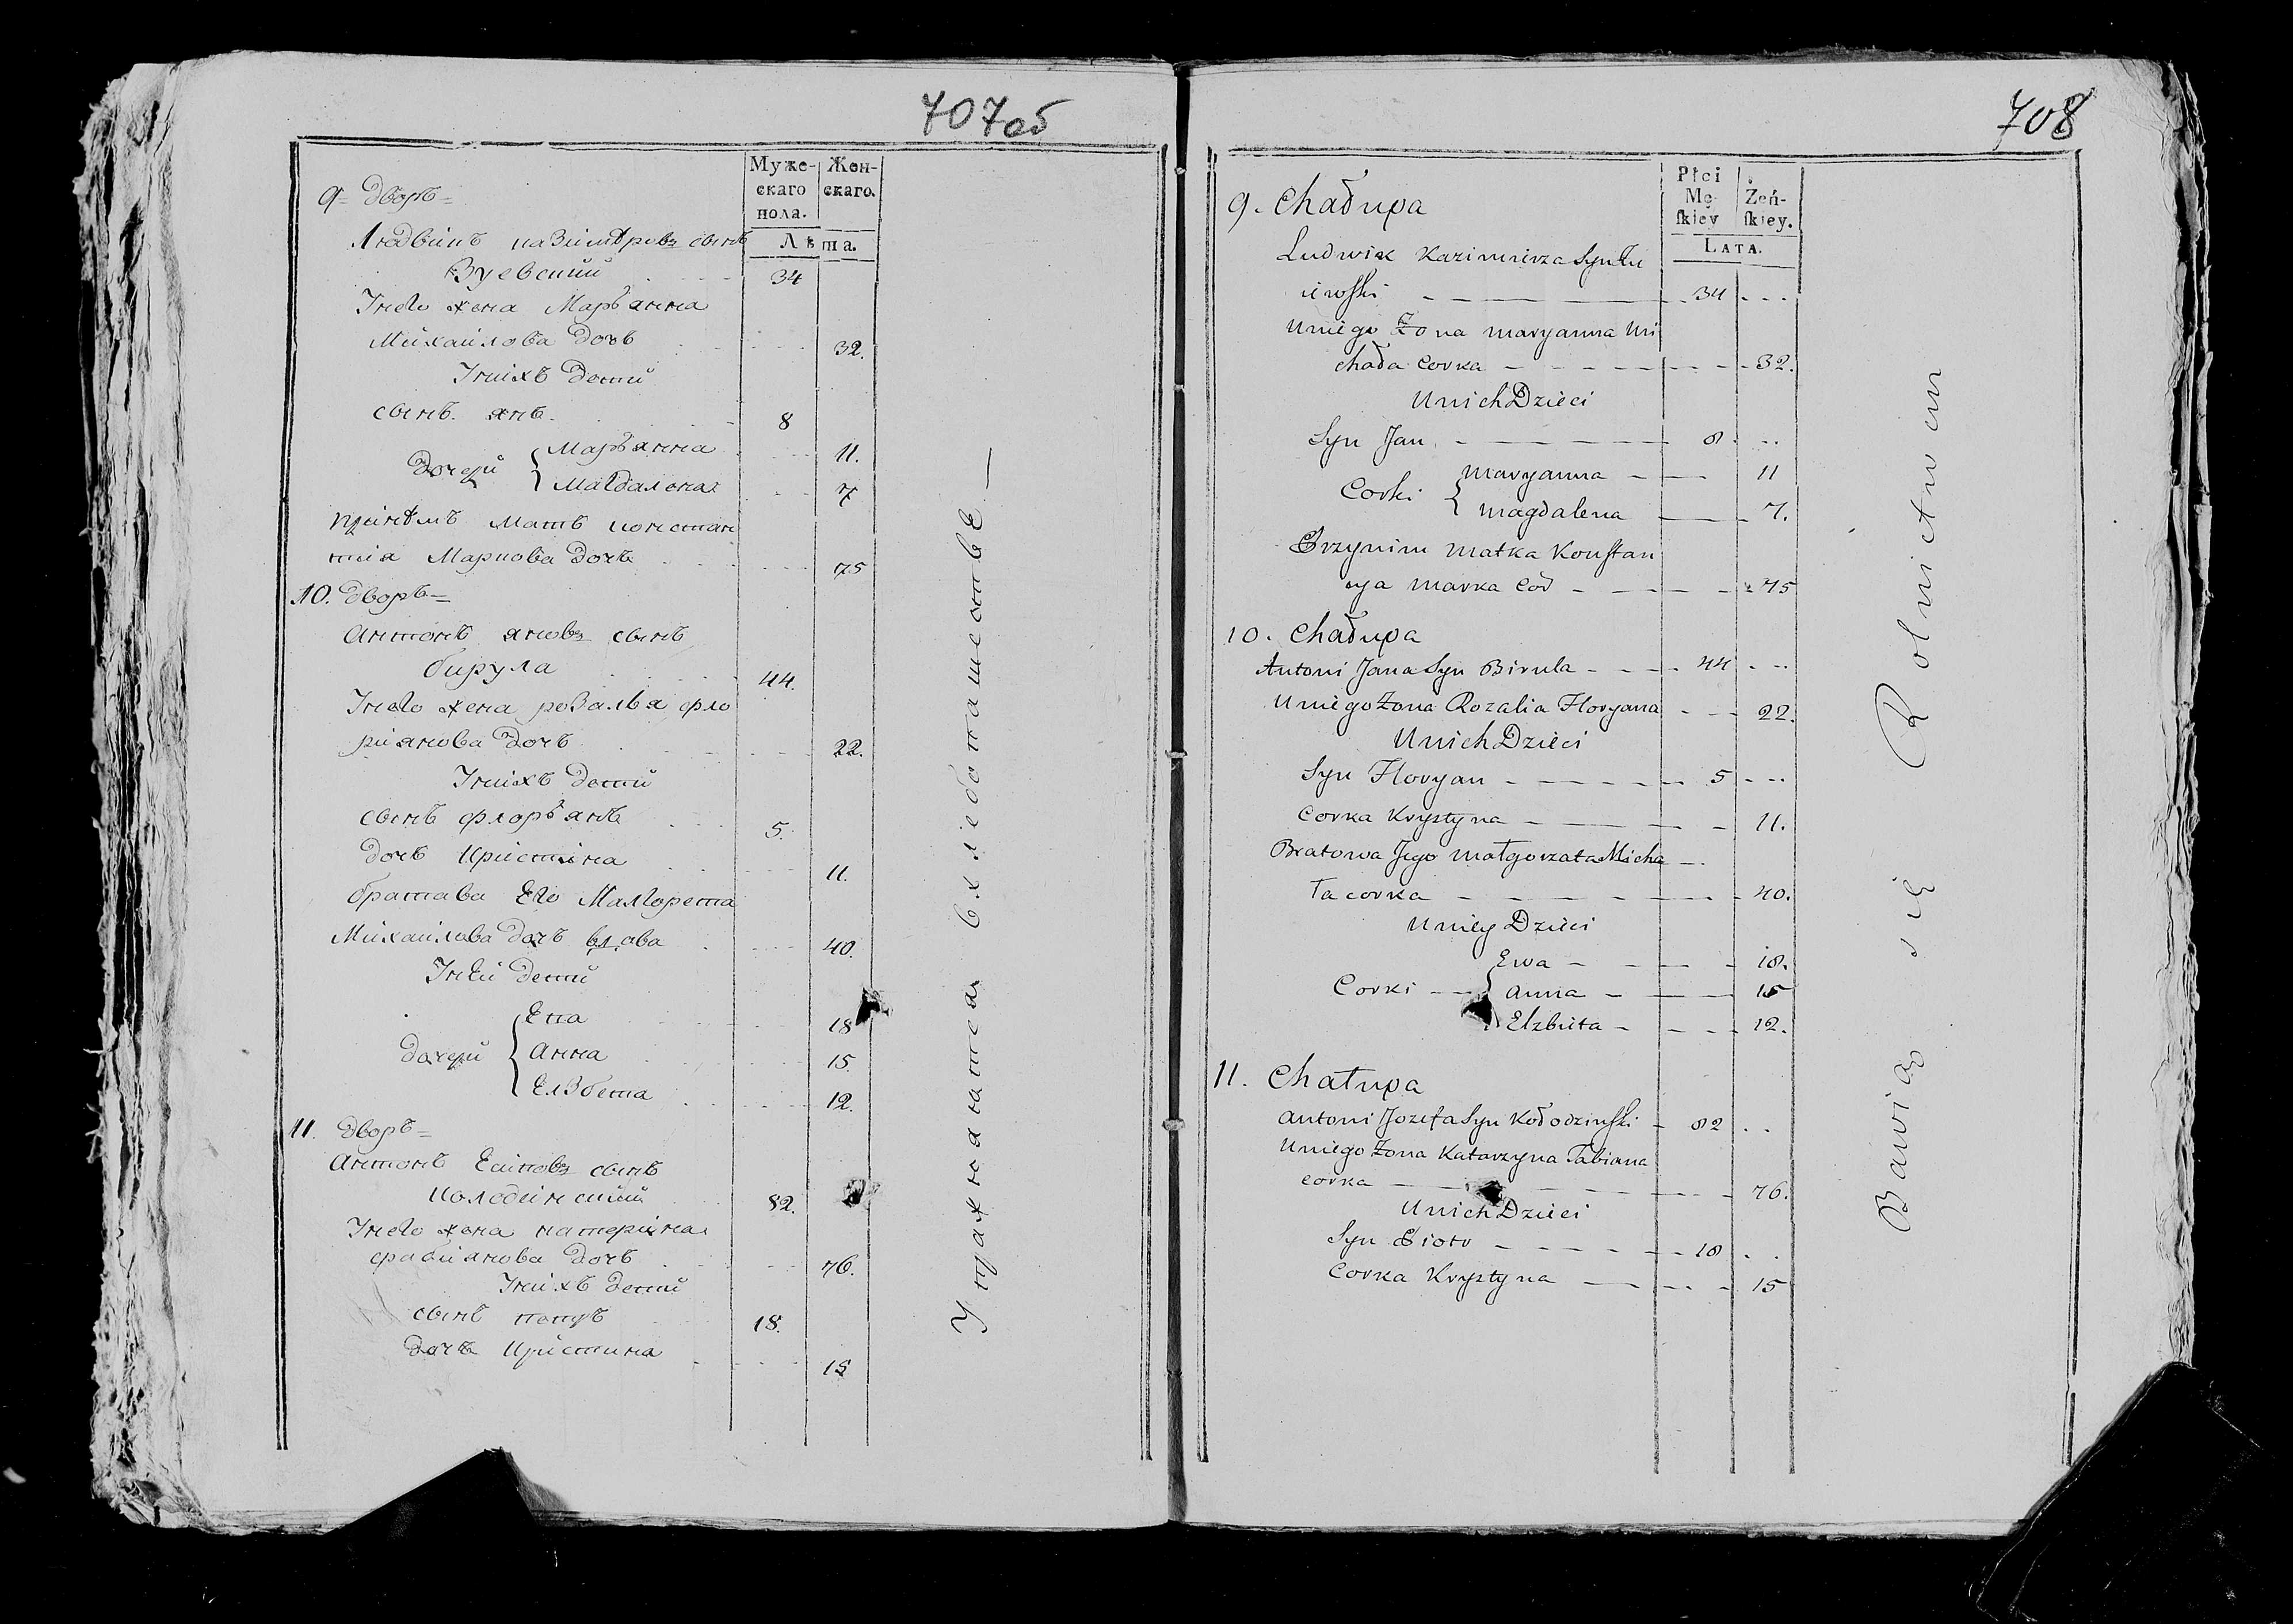 707об
Муже-
скаго
пола.
Жен-
скаго.
Лѣта.
9= дворъ=
Людвикъ казимѣровъ сынъ
Зуевский 34
Унего жена Маръянна
Михаилова дочь 32.
Унихъ детий
сынъ янъ. 8
дочерй { Маръянна 11.
Магдалена 7
принѣмъ мать констан
тия Маркова дочь 75
10. дворъ=
Антонъ яновъ сынъ
бируля 44.
Унего жена розалья фло
риянова дочь 22.
Унихъ детий
сынъ флоръянъ 5.
дочь Кристина 11.
братава Его Малгорета
Михаилова дочь вдова 40.
Уней детий
дочерй { Ева 18
Анна 15.
Елзбета 12.
11. дворъ=
Антонъ Есиповъ сынъ
Колодинский 82.
Унего жена катерина
фабиянова дочь 76.
Унихъ детий
сынъ петръ 18.
дочь Кристина 15
Упражняются вхлебопашествЕ —
708
Płci
Mę
ſkiey
Żeń-
ſkiey.
LATA.
9. Chałupa
Ludwik Kazimierza Syn Zu
iewſki — 34 ...
Uniego Żona Maryanna Mi
chała Corka — 32.
Unich Dzieci
Syn Jan — 8 ...
Corki { Maryanna — 11
Magdalena — 7.
Przynim Matka Konſtan
cya Marka Cor — 75
10. Chałupa
Antoni Jana Syn Birula — 44 ...
Uniego Żona Rozalia Floryana — 22.
Unich Dzieci
Syn Floryan — 5 ...
Corka Krystyna — 11.
Bratowa Jego Małgorzata Micha —
ła corka — 40.
Uniey Dzieci
Corki — { Ewa — 18.
Anna — 15
Elzbieta — 12.
11. Chałupa
Antoni Jozefa Syn Kołodzinſki — 82 ..
Uniego Żona Katarzyna Fabiana
corka — 76.
Unich Dzieci
Syn Piotr — 18 ..
Corka Krystyna — 15
Bawią się Rolnictwem